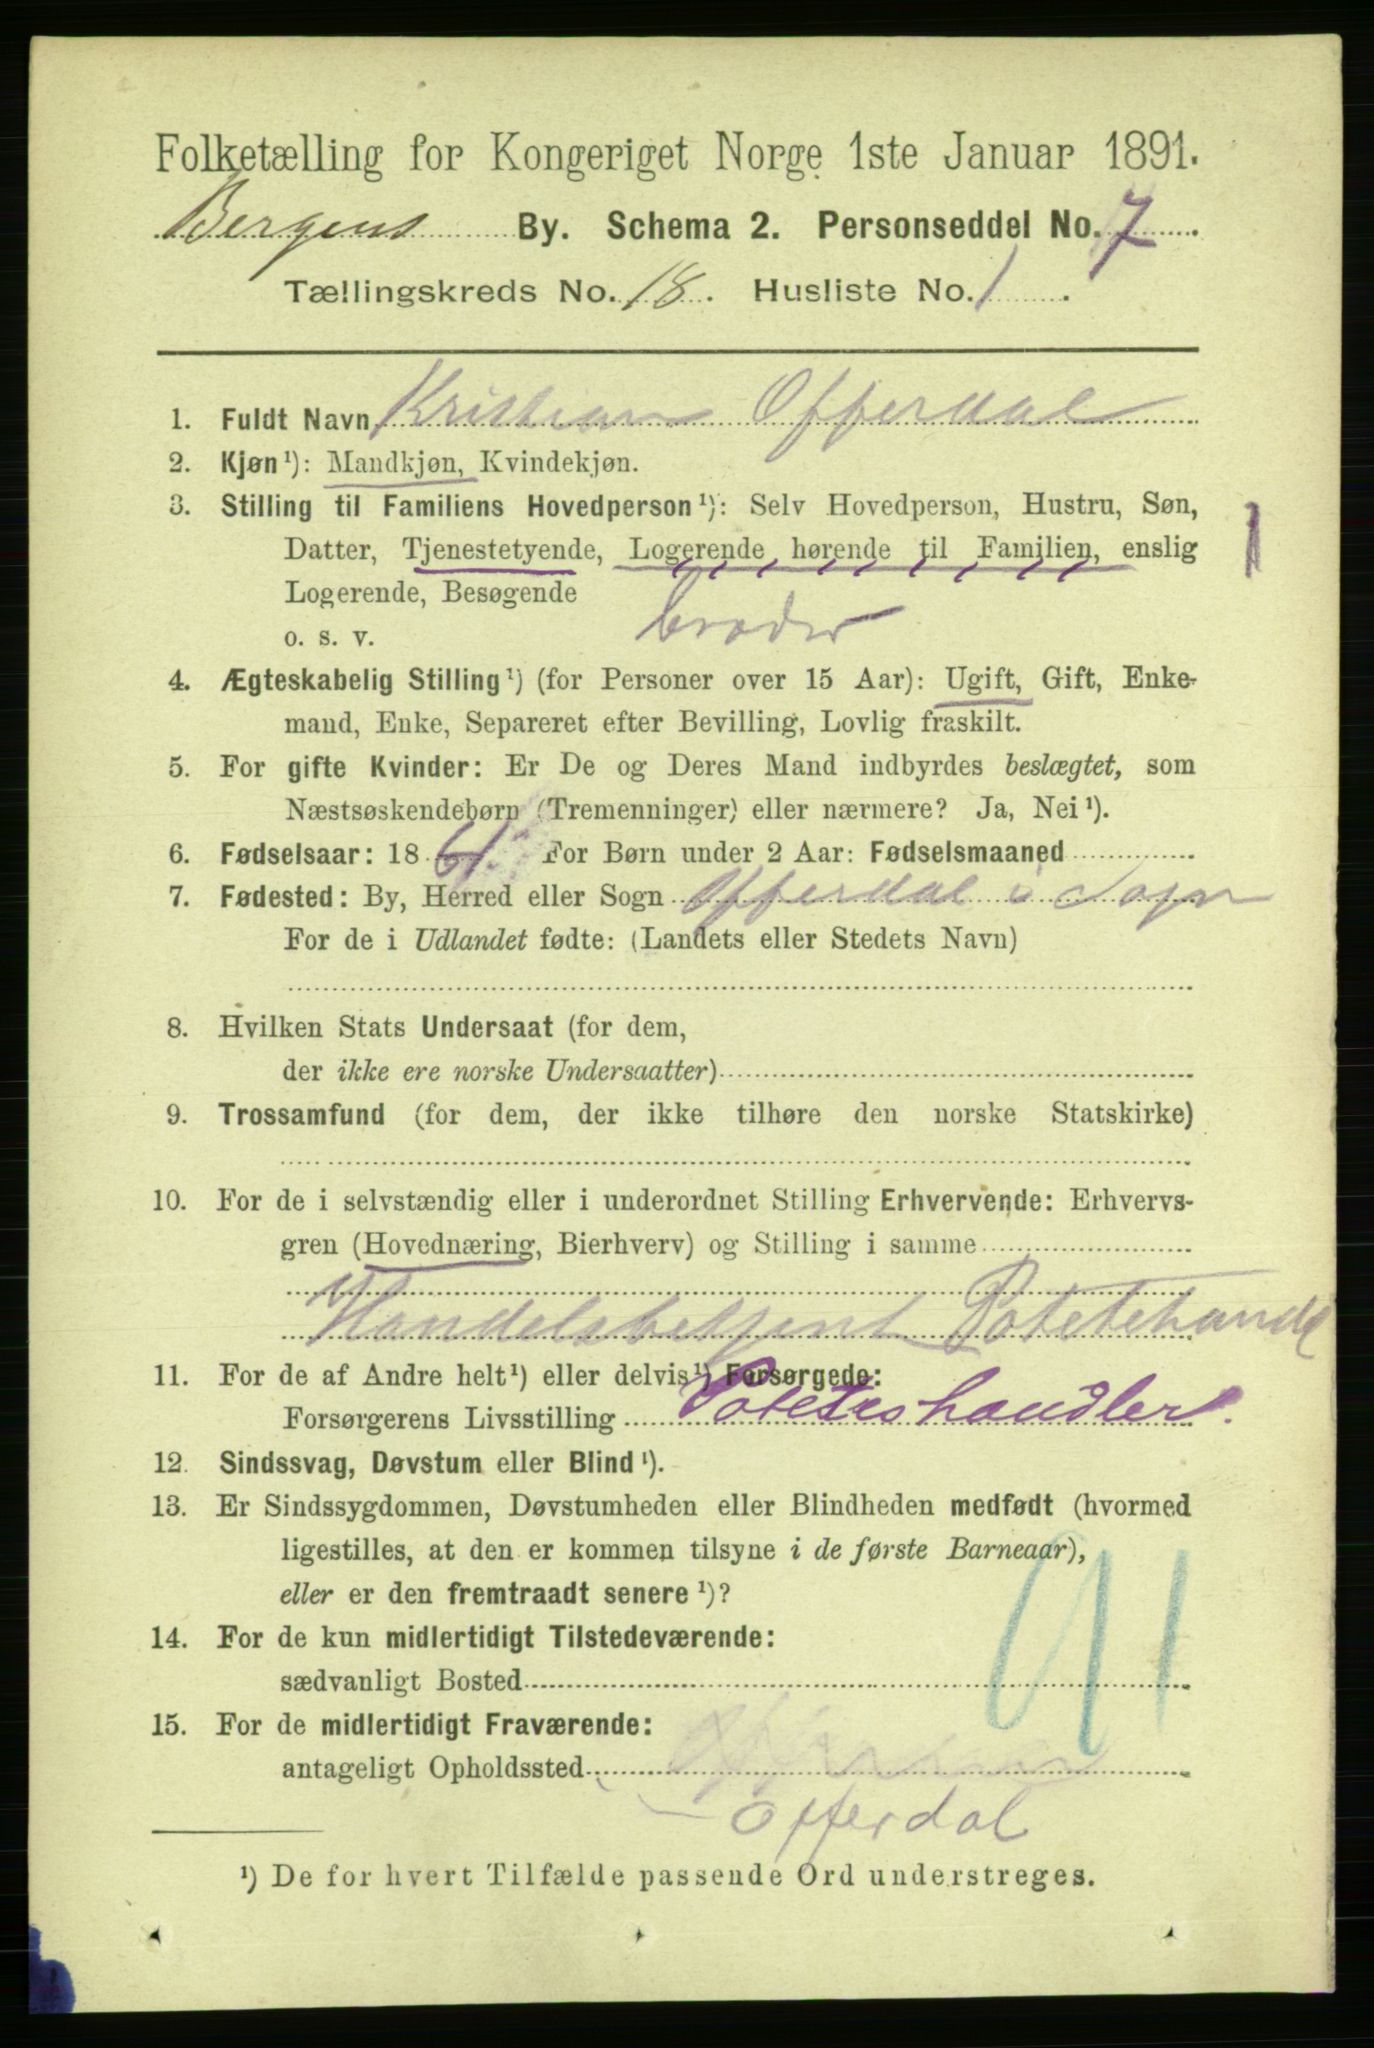 Folketælling for Kongeriget Norge 1ste Januar 1891.
Bergens By. Schema 2. Personseddel No. 7.
Tællingskreds No. 18. Husliste No. 1.
1. Fuldt Navn Kristian Offerdal
2. Kjøn¹): Mandkjøn, Kvindekjøn.
3. Stilling til Familiens Hovedperson¹): Selv Hovedperson, Hustru, Søn,
Datter, Tjenestetyende, Logerende hørende til Familien, enslig
Logerende, Besøgende
o. s. v. broder
4. Ægteskabelig Stilling¹) (for Personer over 15 Aar): Ugift, Gift, Enke-
mand, Enke, Separeret efter Bevilling, Lovlig fraskilt.
5. For gifte Kvinder: Er De og Deres Mand indbyrdes beslægtet, som
Næstsøskendebørn (Tremenninger) eller nærmere? Ja, Nei¹).
6. Fødselsaar: 18 61. For Børn under 2 Aar: Fødselsmaaned
7. Fødested: By, Herred eller Sogn Offerdal i Sogn
For de i Udlandet fødte: (Landets eller Stedets Navn)
8. Hvilken Stats Undersaat (for dem,
der ikke ere norske Undersaatter)
9. Trossamfund (for dem, der ikke tilhøre den norske Statskirke)
10. For de i selvstændig eller i underordnet Stilling Erhvervende: Erhvervs-
gren (Hovednæring, Bierhverv) og Stilling i samme
Handelsbetjent Potetehandel
11. For de af Andre helt¹) eller delvis¹) Forsørgede:
Forsørgerens Livsstilling Poteteshandler.
12. Sindssvag, Døvstum eller Blind¹).
13. Er Sindssygdommen, Døvstumheden eller Blindheden medfødt (hvormed
ligestilles, at den er kommen tilsyne i de første Barneaar),
eller er den fremtraadt senere¹)?
91
14. For de kun midlertidigt Tilstedeværende:
sædvanligt Bosted
15. For de midlertidigt Fraværende:
antageligt Opholdssted
Offerdal
¹) De for hvert Tilfælde passende Ord understreges.